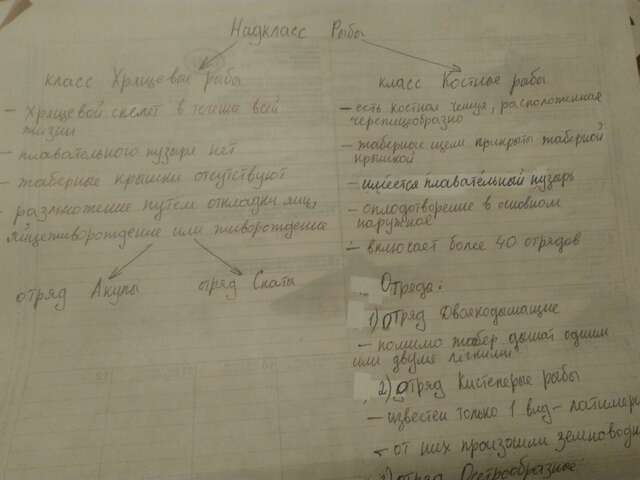 Надкласс Рыбы
класс Хрящевые рыбы
– Хрящевой скелет в течении всей
жизни
– плавательного пузыря нет
– жаберные крышки отсутствуют
– размножение путём откладки яиц,
яйцеживорождение или живорождение
отряд Акулы
отряд Скаты
класс Костные рыбы
– есть костная чешуя, расположенная
черепицеобразно
– жаберные щели прикрыты жаберной
крышкой
– имеется плавательный пузырь
– оплодотворение в основном
наружное
– включает более 40 отрядов
Отряды:
1) Отряд Двоякодышащие
– помимо жабер дышат одним
или двумя лёгкими
2) Отряд Кистепёрые рыбы
– известен только 1 вид – латимери
– от них произошли земновод
отряд Осетрообразные